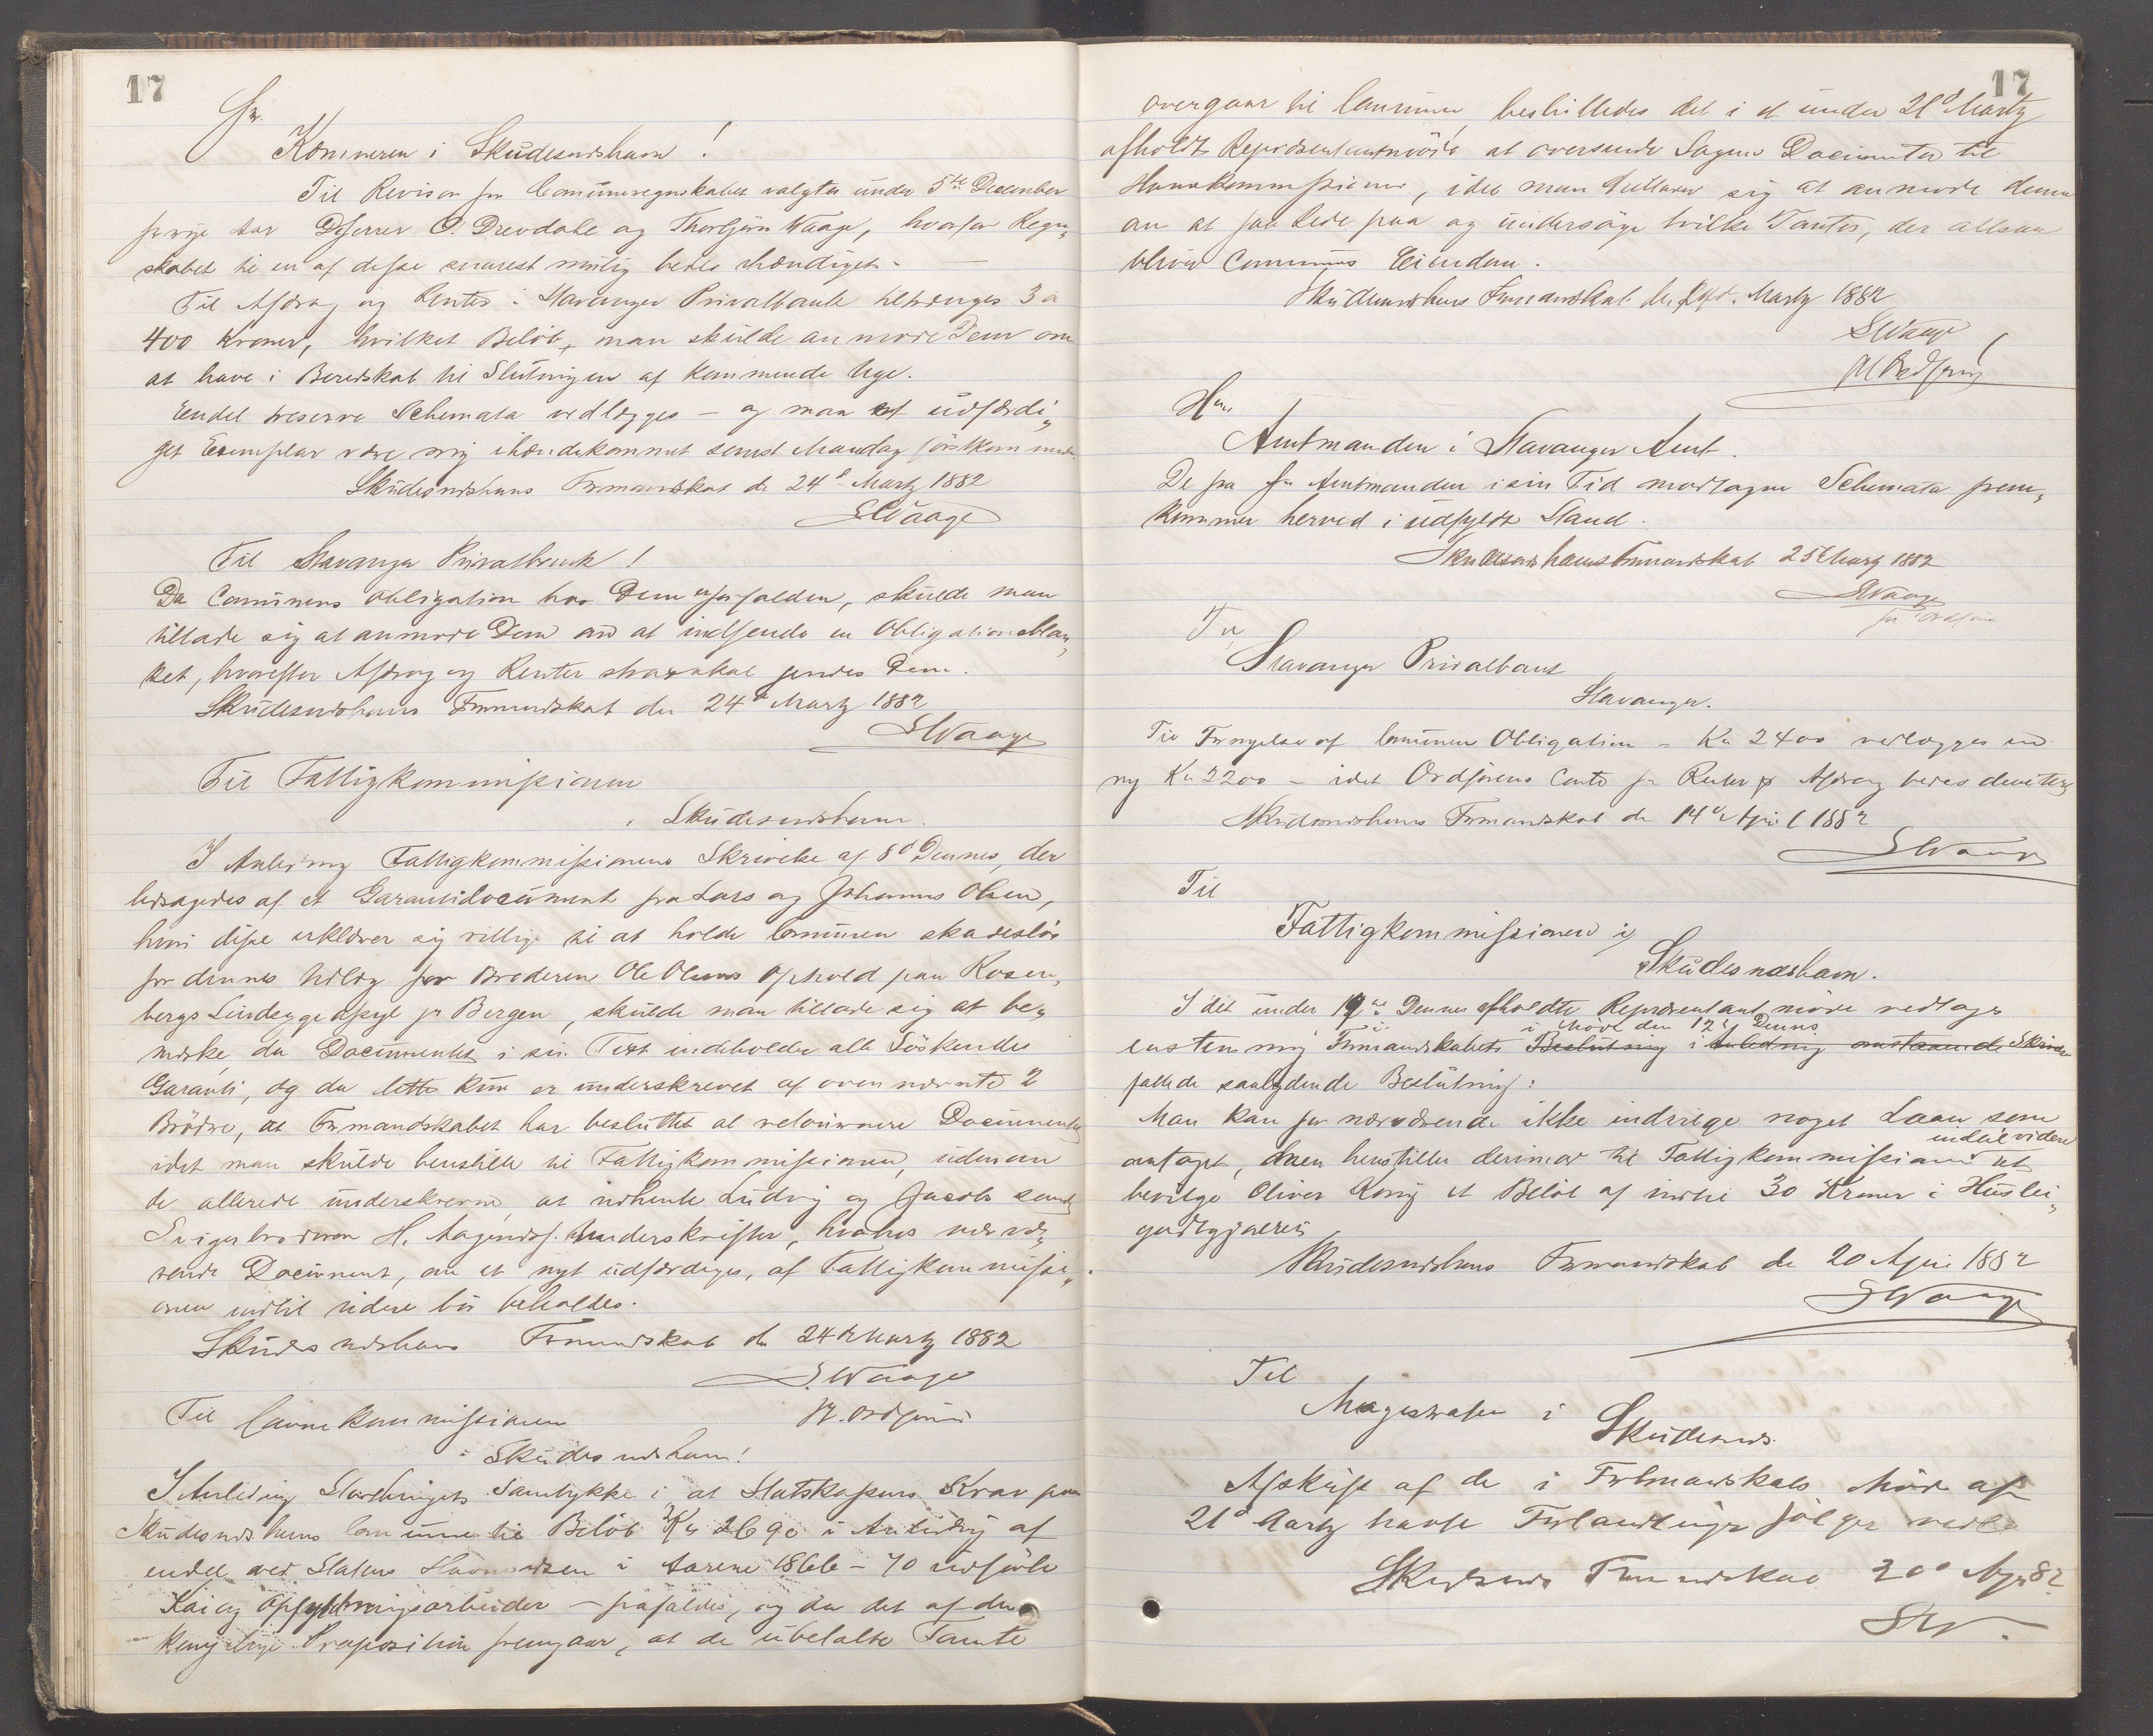 17
Hr.
Kæmneren i Skudesneshavn!
Til Revisor for Communeregnskabet valgtes under 5te December
forrige Aar DHerrer O. Drevdahl og Thorbjørn Waage, hvorfor Regn„
skabet til en af disse snarest mulig bedes ihændiget. —
Til Afdrag og Renter i Stavanger Privatbank tiltrænges 3 a
400 Kroner, hvilket Beløb, man skulde anmode Dem om
at have i Beredskab til Slutningen af kommende Uge.
Endel Schemata vedlægges — og maa et udfærdi„
get Exemplar være mig ihændekommet senest Mandag førstkommende
Skudesneshavns Formandskab de 24d Martz 1882
S Waage
Til Stavanger Privatbank!
Da Communens Obligation hos Dem er forfalden, skulde man
tillade sig at anmode Dem om at indsende en Obligationsblan„
ket, hvorefter Afdrag og Renter strax skal sendes Dem.
Skudesneshavns Formandskab den 24d Martz 1882
S Waage
Til Fattigkommissionen
i Skudesneshavn.
I Anledning Fattigkommissionens Skrivelse af 8d Dennes, der
ledsagedes af et Garantidocument fra Lars og Johannes Olsen,
hvori disse erklærer sig villige til at holde Communen skadesløs
for dennes Udlæg for Broderen Ole Olsens Ophold paa Rosen„
bergs Sindsygeasyl pr Bergen, skulde man tillade sig at be„
mærke, da Documentet i sin Text indeholder alle Söskendes
Garanti, og da dette kun er underskrevet af ovennævnte 2
Brödre, at Formandskabet har besluttet at retournere Documentet
idet man skulde henstille til Fattigkommissionen, udenom
de allerede underskrevne, at indhente Ludvig og Jacob samt
Svigerbroderen H. Aagends. Underskrifter, hvorhos nærvæ„
rende Document, om et nyt udfærdiges, af Fattigkommissi„
onen indtil videre bör beholdes.
Skudesneshavns Formandskab de 24de Martz 1882
S. Waage
st. Ordförer
Til Havnekommissionen
i Skudesneshavn!
I Anledning Storthingets Samtykke i at Statskassens Krav paa
Skudesneshavns Commune til Beløb Kr 2690 i Anledning af
endel ved Statens Havnevæsen i Aarene 1866–70 udførte
Kai og Opfyldningsarbeider — frafaldes, og da det af den
kongelige Proposition fremgaar, at de ubetalte Tomte
17
overgaar til Communen besluttedes det i et under 21d Martz
afholdt Repræsentantmöde at oversende Sagens Documenter til
Havnekommissionen, idet man tillader sig at anmode denne
om at paa Lede paa og undersöge hvilke Tomter, der altsaa
bliver Communens Eiendom.
Skudesneshavns Formandskab de Martz 1882
S Waage
st Ordförer
Herr
Amtmanden i Stavanger Amt.
De fra Hr Amtmanden i sin Tid modtagne Schemata frem„
kommer herved i udfyldt Stand.
Skudesneshavns Formandskab 25 Martz 1882
S Waage
st Ordförer
Til
Stavanger Privatbank
Stavanger.
Til Fornyelse af Communens Obligation – Kr 2400 vedlægges en
ny Kr 2200 – idet Ordförerens Conto for Renter & Afdrag bedes debiteret
Skudesneshavns Formandskab de 14d April 1882
S Waage
Til
Fattigkommissionen i
Skudesneshavn.
I det under 19de Dennes afholdte Repræsentantmöde vedtoges
enstemmig Formandskabets Beslutning i Anledning omstaaende Skrivelse
i Möde den 12d Dennes
fattede saalydende Beslutning:
Man kan for nærværende ikke indvilge noget Laan som
antaget, men henstiller derimod til Fattigkommissionen indtil videre at
bevilge Oliver Rönij et Beløb af indtil 30 Kroner i Huslei„
godtgjørelse
Skudesneshavns Formandskab de 20 April 1882
S Waage
Til
Magistraten i
Skudesnes
Afskrift af de i Formandskabs Möde af
21d Martz havte Forhandlinger fölger vedlagt
Skudesnes Formandskab 20d Apr 82
SW.